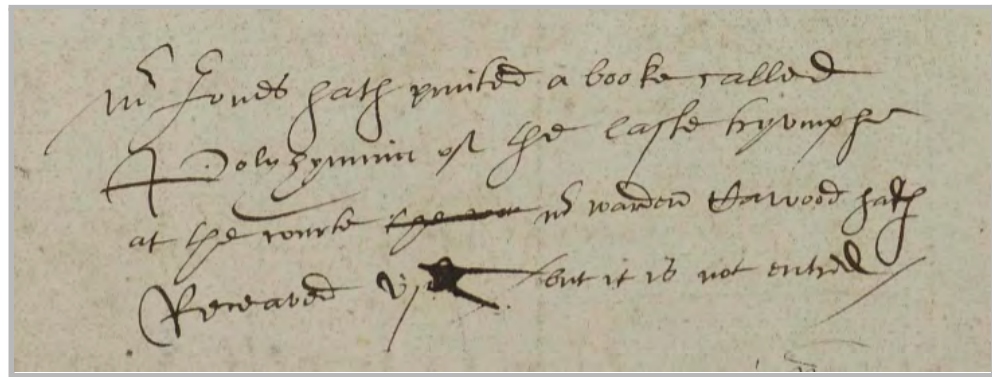 mr Jones hath printed a booke called
Polyhymnia of the laste tryvmphe
at the courte mr warden Cawood hath
Receaved vjd but it is not entred